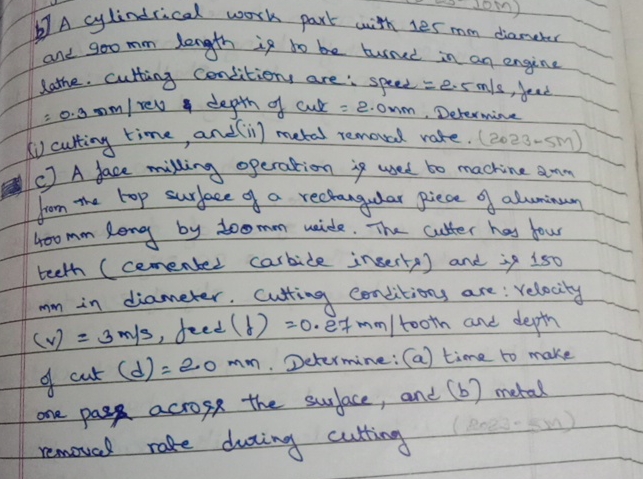 b) A cylindrical work part with 125 mm diameter
and 900 mm length is to be turned in an engine
lathe. Cutting Conditions are: speed = 2.5 m/s, feed
= 0.3 mm/rev & depth of cut = 2.0mm. Determine
(i) cutting time, and (ii) metal removal rate. (2023-5M)
c) A face milling operation is used to machine 2mm
from the top surface of a rectangular piece of aluminum
400 mm long by 100mm wide. The cutter has four
teeth (cemented carbide inserts) and is 150
mm in diameter. Cutting Conditions are: velocity
(v) = 3 m/s, feed (f) = 0.27 mm/tooth and depth
of cut (d) = 2.0 mm. Determine: (a) time to make
one pass across the surface, and (b) metal
removal rate during cutting (2023-5M)